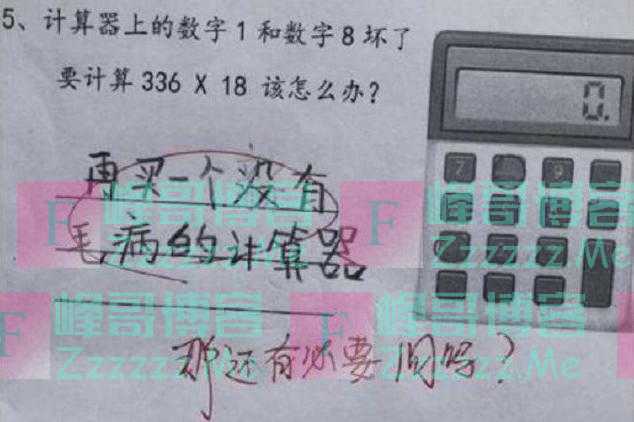 5、计算器上的数字1和数字8坏了
要计算336 X 18 该怎么办？
0.
7
9
再买一个没有
毛病的计算器
那还有必要问吗？
F 峰哥博客
Zzzzzz.Me
F 峰哥博客
Zzzzzz.Me
F 峰哥博客
Zzzzzz.Me
F 峰哥博客
Zzzzzz.Me